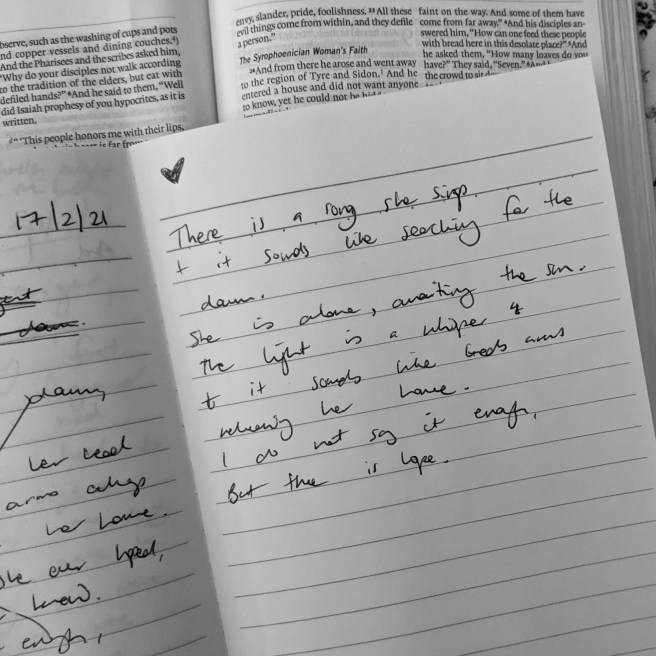 bserve, such as the washing of cups and pots
nd copper vessels and dining couches.⁴)
And the Pharisees and the scribes asked him,
"Why do your disciples not walk according
to the tradition of the elders, but eat with
defiled hands?" ⁶And he said to them, "Well
did Isaiah prophesy of you hypocrites, as it is
written,
"'This people honors me with their lips,
is far from
envy, slander, pride, foolishness. ²³All these
evil things come from within, and they defile
a person."
The Syrophoenician Woman's Faith
²⁴And from there he arose and went away
to the region of Tyre and Sidon.¹ And he
entered a house and did not want anyone
to know, yet he could not be
faint on the way. And some of them have
come from far away." ⁴And his disciples an-
swered him, "How can one feed these people
with bread here in this desolate place?" ⁵And
he asked them, "How many loaves do you
have?" They said, "Seven."
the crowd to sit
17/2/21
dawn.
dawn,
her head
arms
her home.
she ever hoped,
knew.
enough,
There is a song she sings,
+ it sounds like searching for the
dawn.
She is alone, awaiting the sun.
The light is a whisper &
+ it sounds like arms
her home.
I do not say it enough,
But there is hope.